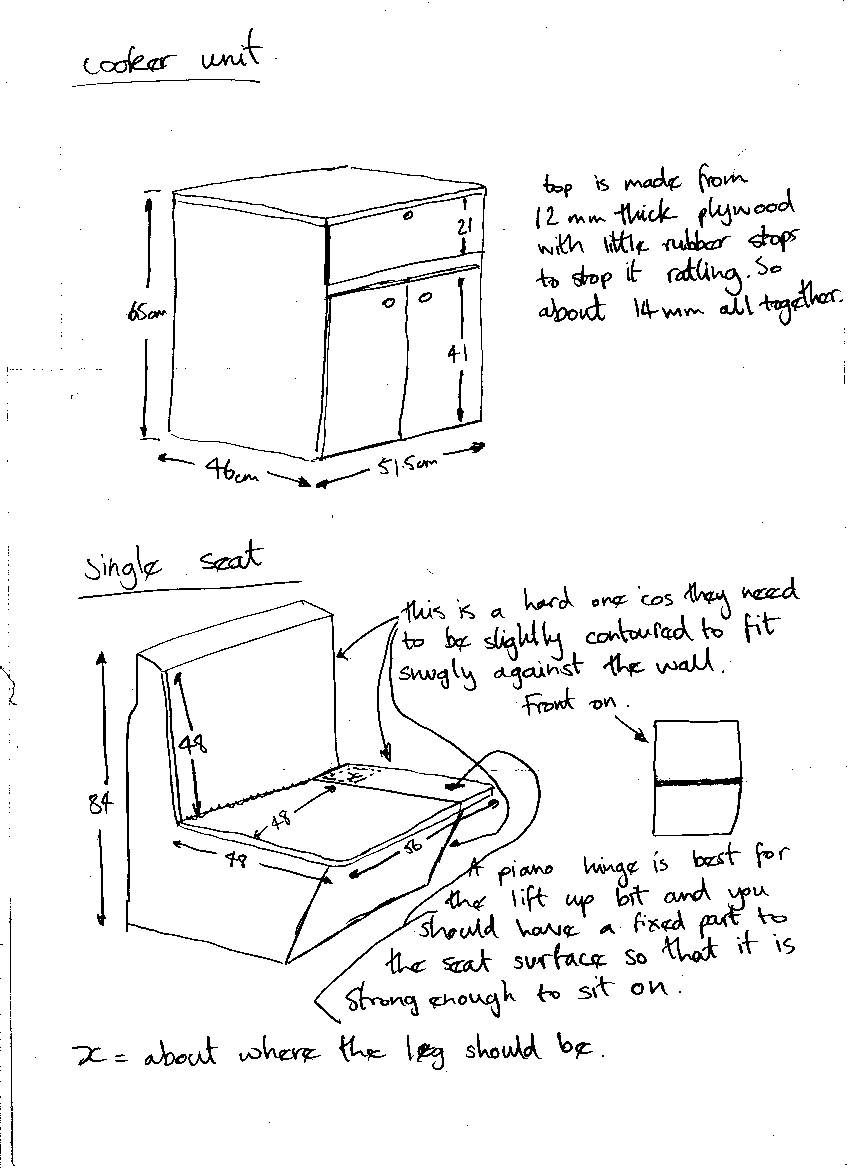 cooker unit
top is made from
12 mm thick plywood
with little rubber stops
to stop it ratling. So
about 14mm all together.
21
65cm
41
46cm
51.5cm
single seat
this is a hard one 'cos they need
to be slightly contoured to fit
snugly against the wall.
Front on.
48
84
x
48
48
56
A piano hinge is best for
the lift up bit and you
should have a fixed part to
the seat surface so that it is
strong enough to sit on.
x = about where the leg should be.